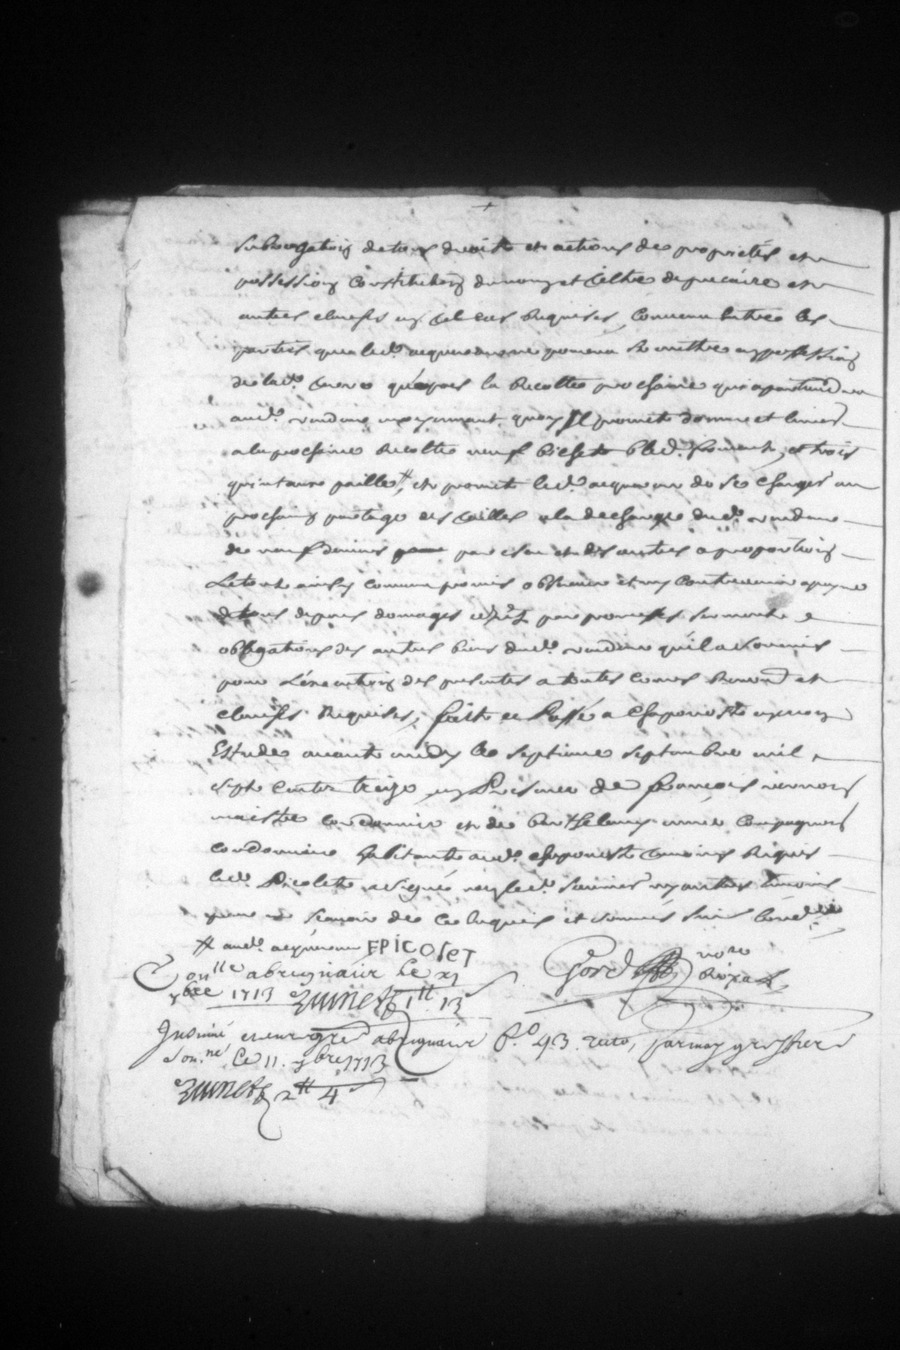 subrogation de tous droits et actions de proprietés et
possession Constitution du nom et tiltre de precaire et
autres clauses en tel cas Requises, Convenu Entre les
parties que led. acquereur ne pourra se mettre en possession
de lad. terre qu'apres la Recolte prochaine qui apartiendra
aud. vendeur moyennant quoy Il promet donner et livrer
a la prochaine Recolte neuf bichets bled froment, et trois
quintaux paille, et promet led. acquereur de se charger au
prochain partage des tailles a la descharge dud. vendeur
de neuf deniers par escu et des autres a proportion
Le tout ainsy comme promis observer et ny Contrevenir a peyne
de tous depens domages par promesses serment et
obligations des autres biens dud. vendeur qu'il a soumis
pour L'execution des presentes a toutes Cours et
clauses Requises, faict et Passé a Chaponost en mon
Estude avant midy le septieme septembre mil
sept Cents treize, en Presence de françois
maistre Cordonnier et de Barthelemy Compagnon
Cordonnier habitants aud. Chaponost temoins Requis
led. Picolet a signé non led. ny autres temoins
pour ne sçavoir de ce Enquis et sommés
aud. acquereur EPICOLET
Con.lle a brignais le xj
7bre 1713 1tt 13
Gord no.re Royal
Insinué et enregré a brignais f.o 43. recto, greffier
Le 11. 7bre 1713
2tt 4